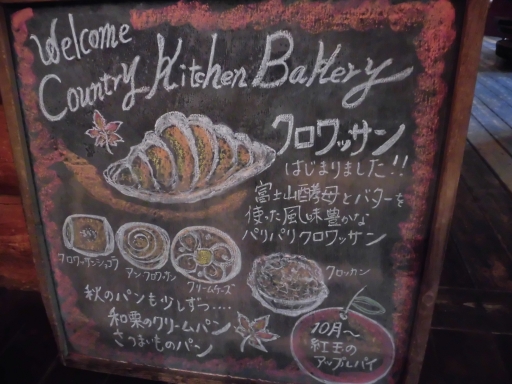 Welcome
Country Kitchen Bakery
クロワッサン
はじまりました!!
富士山酵母とバターを
使った風味豊かな
パリパリクロワッサン
クロワッサンショコラ
アンクロワッサン
クリームチーズ
クロッカン
秋のパンも少しずつ....
和栗のクリームパン
さつまいものパン
10月〜
紅玉の
アップルパイ